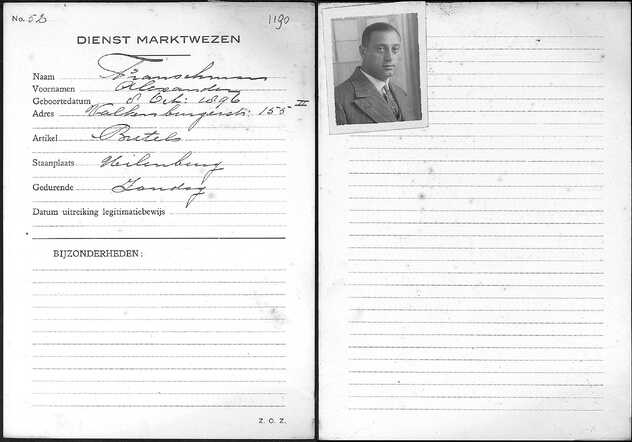 No. 52 1190
DIENST MARKTWEZEN
Naam Franschman
Voornamen Alexander
Geboortedatum 8 Oct: 1896
Adres Valkenburgerstr: 155 II
Artikel
Staanplaats Uilenburg
Gedurende Zondag
Datum uitreiking legitimatiebewijs
BIJZONDERHEDEN:
Z. O. Z.